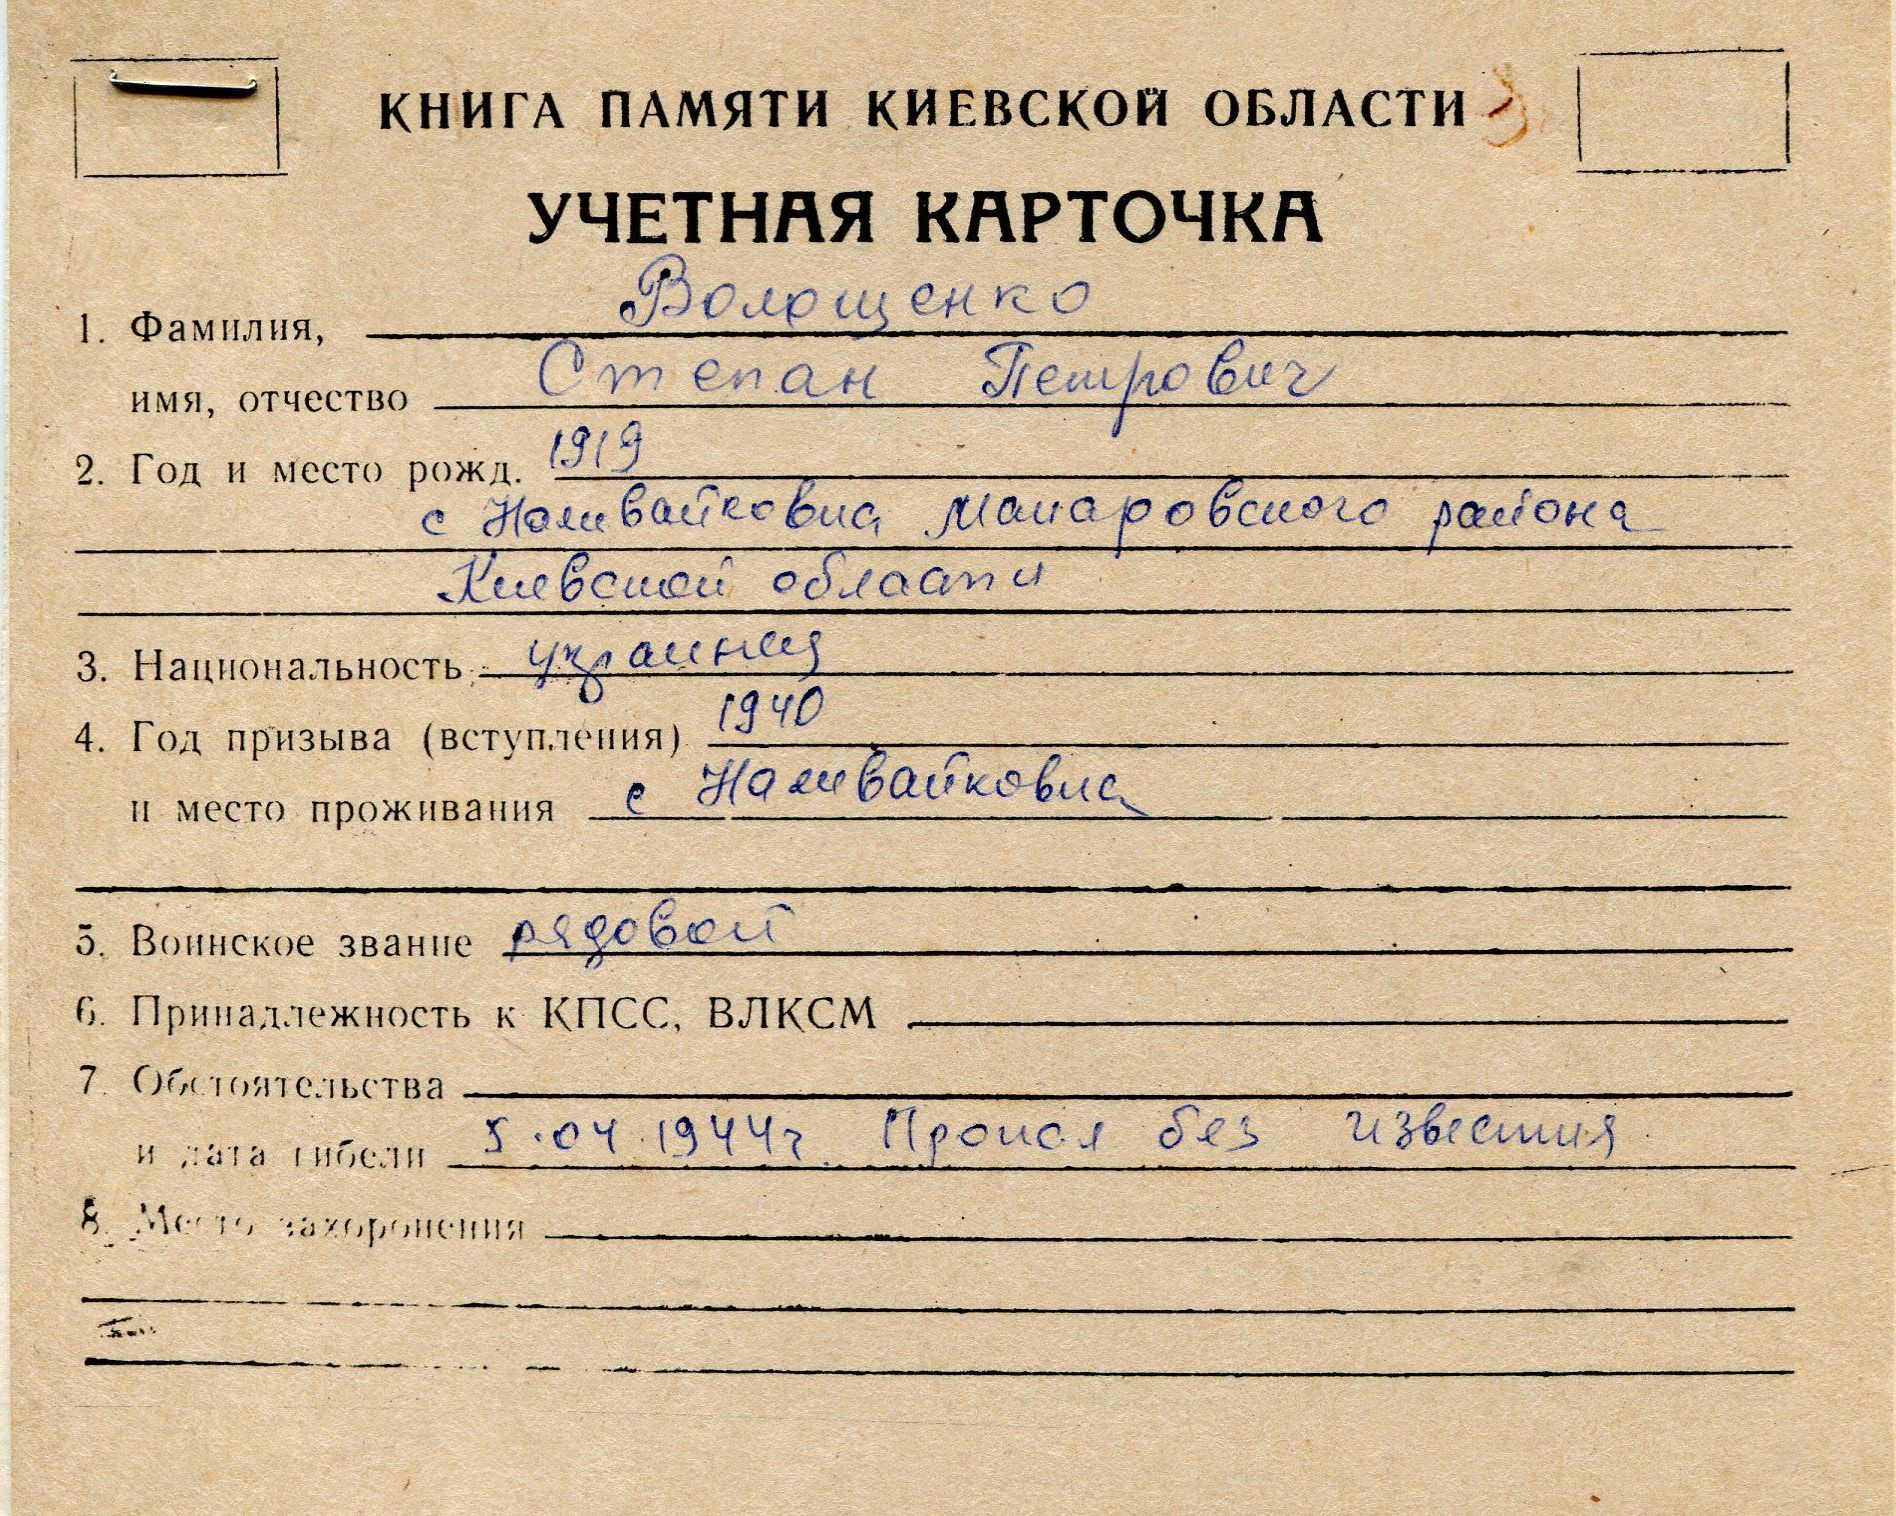 КНИГА ПАМЯТИ КИЕВСКОЙ ОБЛАСТИ
УЧЕТНАЯ КАРТОЧКА
1. Фамилия, Волощенко
имя, отчество Степан Петрович
2. Год и место рожд. 1919
с Наливайковка Макаровского района
Киевской области
3. Национальность украинец
4. Год призыва (вступления) 1940
и место проживания с Наливайковка
5. Воинское звание рядовой
6. Принадлежность к КПСС, ВЛКСМ
7. Обстоятельства
и дата гибели 5.04.1944г. Пропал без известия
8. Место захоронения